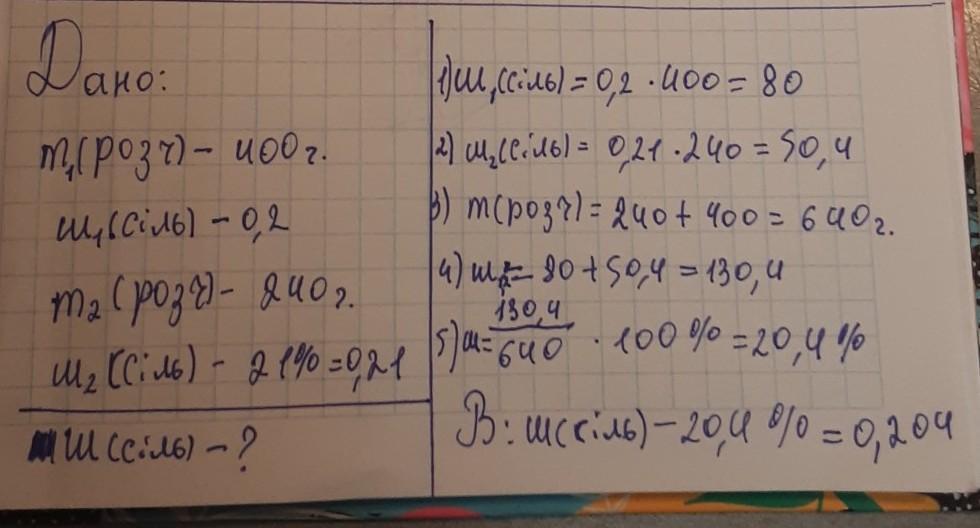 Дано:
m₁(розч) - 400г.
ш₁(сіль) - 0,2
m₂(розч) - 240г.
ш₂(сіль) - 21% = 0,21
ш(сіль) - ?
1) ш₁(сіль) = 0,2 · 400 = 80
2) ш₂(сіль) = 0,21 · 240 = 50,4
3) m(розч) = 240 + 400 = 640г.
4) ш = 80 + 50,4 = 130,4
5) ш = 130,4/640 · 100% = 20,4%
В: ш(сіль) - 20,4% = 0,204